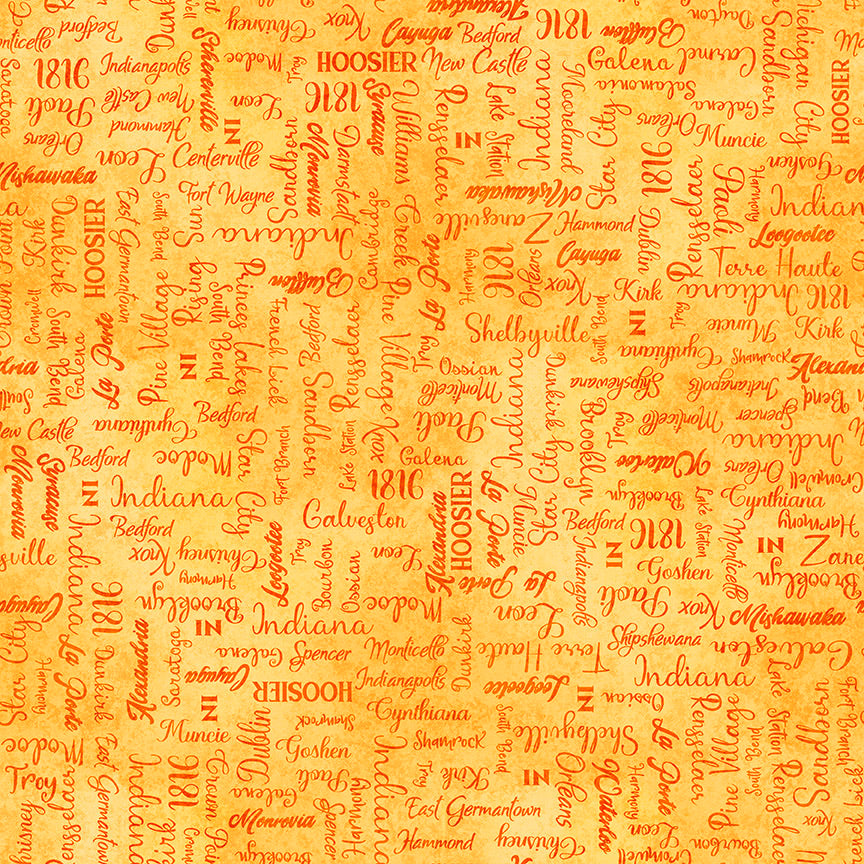 Bedford
Chrisney
Knox
Alexandria
Cayuga
Bedford
1816
Bluffton
Dayton
Sandborn
Michigan City
Monticello
Schererville
Modoc
Troy
HOOSIER
New Castle
Galena
Carmel
HOOSIER
Saratoga
1816
Indianapolis
Paoli
New Castle
Leon
1816
Syracuse
Williams Creek
Rensselaer
Lake Station
Indiana
Mooreland
Salamonia
Star City
Galena
Orleans
Muncie
Orleans
Hammond
IN
IN
Leon
Centerville
Sandborn
Monrovia
Darmstadt
1816
Goshen
Mishawaka
Fort Wayne
Mishawaka
Rensselaer
Paoli
Harmony
Indiana
Crown Point
Kirk
Dunkirk
HOOSIER
East Germantown
South Bend
Rising Sun
Indiana
Cambridge
Zanesville
Hammond
Dublin
Loogootee
Cayuga
Terre Haute
Cromwell
South Bend
Pine Village
South Bend
Princes Lakes
Bluffton
La Porte
Harmony
1816
Orleans
Knox
Kirk
Indiana
1816
Galena
La Porte
IN
French Lick
Bedford
Rensselaer
Pine Village
Troy
Shelbyville
South Bend
IN
Troy
Muncie
Kirk
Ossian
Cynthiana
Shamrock
Alexandria
Monticello
Indiana
Dunkirk
Shipshewana
Indianapolis
Bend
New Castle
Cynthiana
Bedford
Star City
Sandborn
Paoli
Brooklyn
Troy
Monticello
Spencer
Indiana
Syracuse
Bedford
Modoc
Fort Branch
Lake Station
Knox
Galena
Star City
Waterloo
Orleans
Cromwell
Monrovia
IN
Indiana
1816
HOOSIER
La Porte
Muncie
Brooklyn
Lake Station
Cynthiana
Indiana
Bedford
Galveston
Alexandria
Bedford
1816
Monticello
Harmony
Knox
Chrisney
Loogootee
Troy
Bourbon
Ossian
Leon
Indianapolis
IN
IN
Zanesville
Harmony
La Porte
La Porte
Goshen
Brooklyn
Cayuga
1816
Brooklyn
Modoc
Leon
Paoli
Knox
Mishawaka
Star City
La Porte
Dunkirk
Alexandria
Saratoga
IN
Indiana
Dunkirk
Terre Haute
Shipshewana
Galveston
Harmony
Galena
Spencer
Monticello
Indiana
Cayuga
HOOSIER
Indianapolis
Loogootee
IN
Ossian
Lake Station
Fort Branch
Sandborn
IN
Muncie
Dublin
Shamrock
Cynthiana
South Bend
Shelbyville
La Porte
Rensselaer
Pine Village
South Bend
Rensselaer
Modoc
East Germantown
Goshen
Shamrock
Troy
Rensselaer
Indiana
1816
Crown Point
Galena
Paoli
Indiana
Troy
Kirk
IN
Orleans
Waterloo
Harmony
Chrisney
Kirk
Monrovia
Spencer
Harmony
East Germantown
Leon
Knox
Brooklyn
Hammond
Chrisney
Bourbon